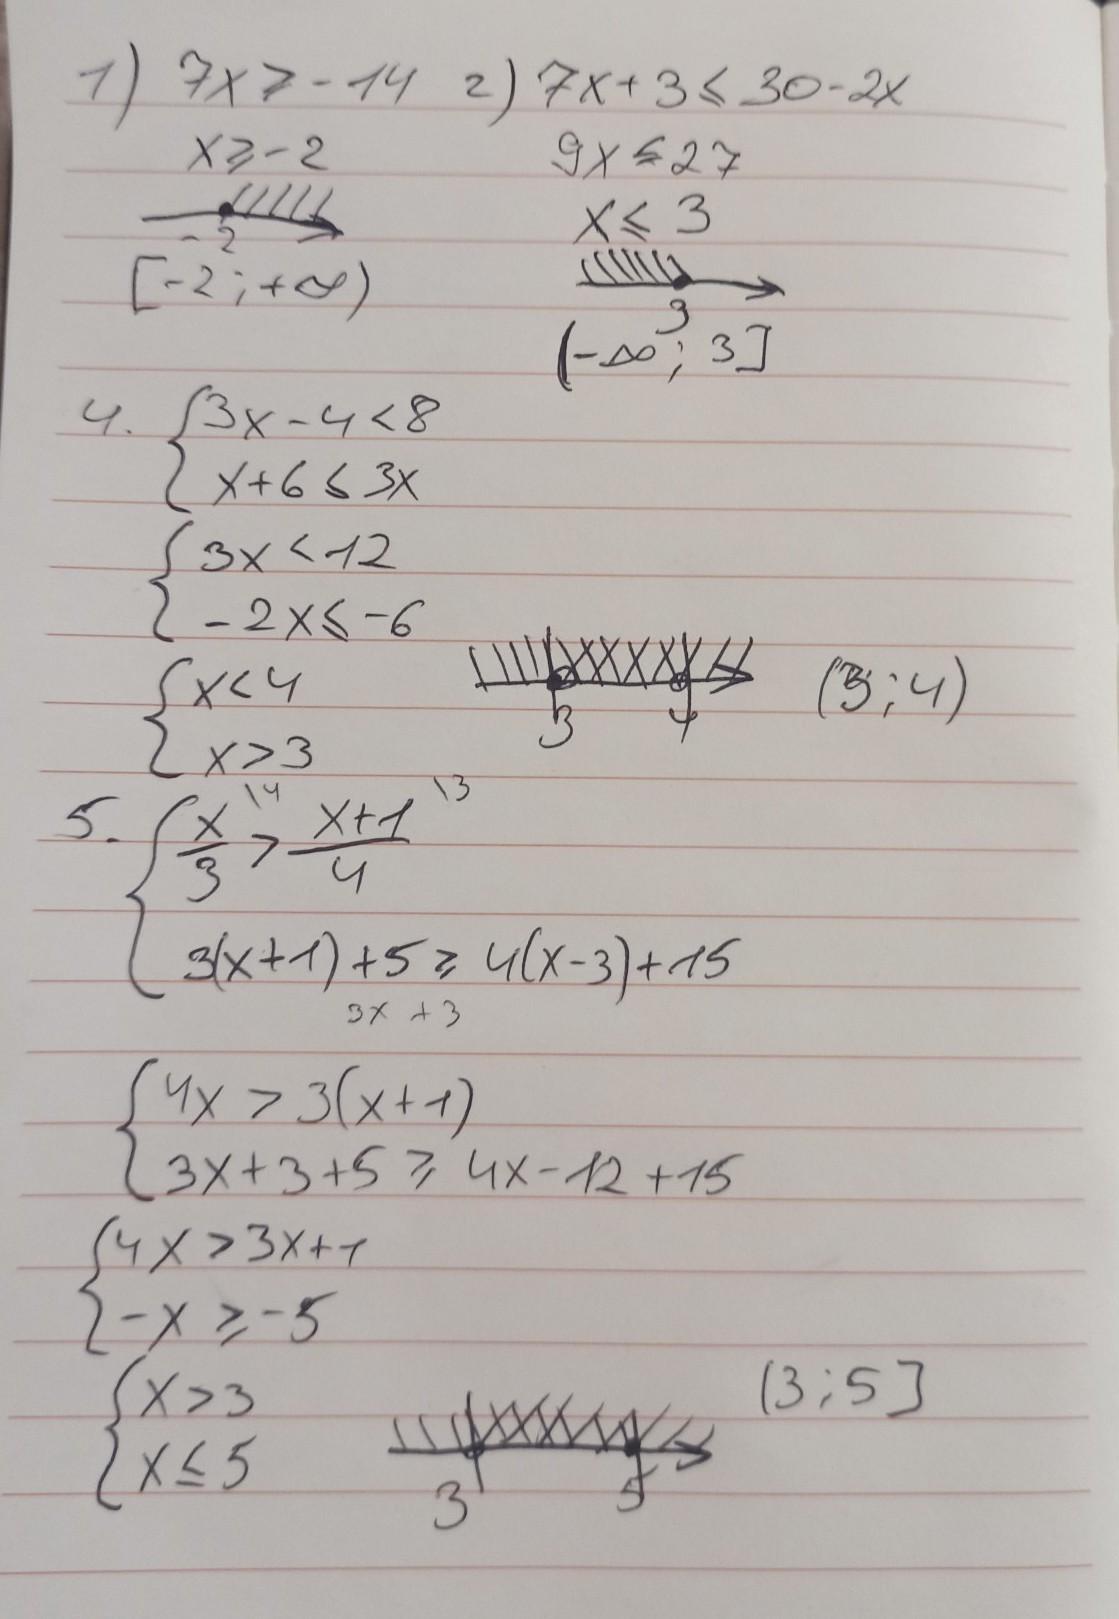 1) 7x ⩾ -14 2) 7x + 3 ⩽ 30 - 2x
x ⩾ -2 9x ⩽ 27
x ⩽ 3
-2
[-2; +∞) 3
(-∞; 3]
4. { 3x - 4 < 8
x + 6 ⩽ 3x
{ 3x < 12
-2x ⩽ -6
{ x < 4
x > 3
3 4 (3; 4)
5. { x/3 \4 > x+1/4 \3
3(x+1) + 5 ⩾ 4(x-3) + 15
3x + 3
{ 4x > 3(x+1)
3x + 3 + 5 ⩾ 4x - 12 + 15
{ 4x > 3x + 1
-x ⩾ -5
{ x > 3 (3; 5]
x ⩽ 5
3 5